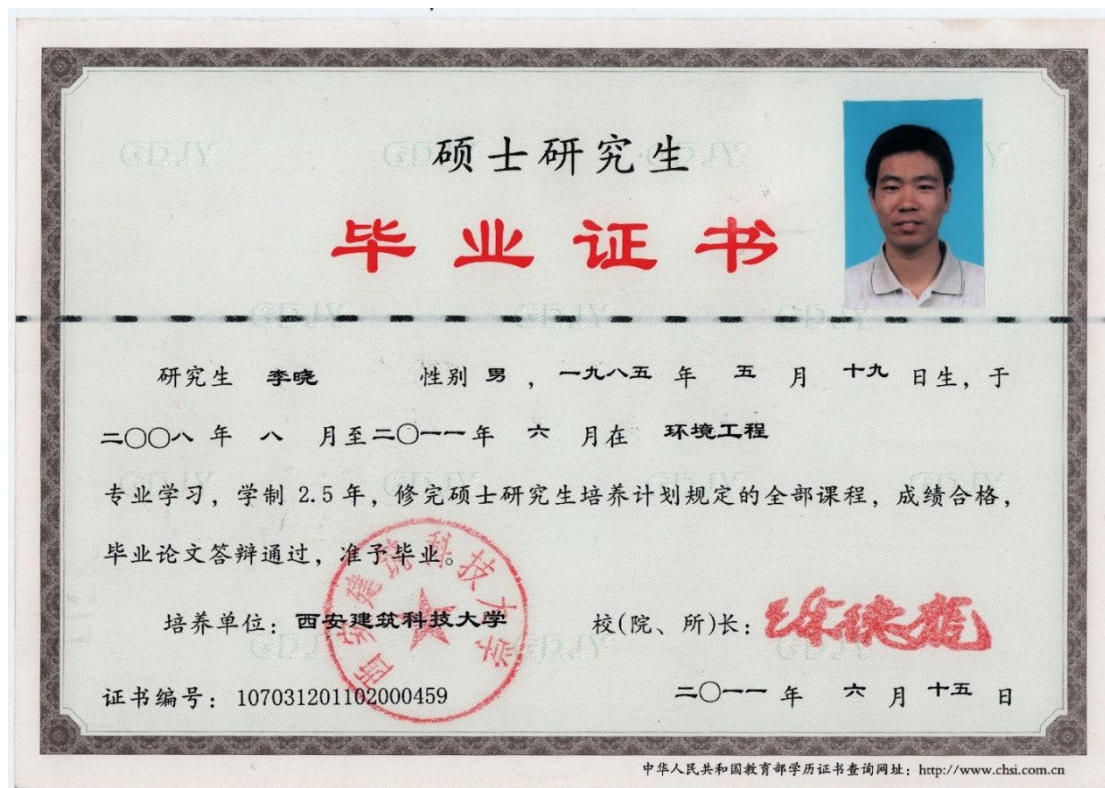 硕士研究生
毕业证书
研究生 李晓 性别 男 ，一九八五 年 五 月 十九 日生，于
二〇〇八 年 八 月至二〇一一年 六 月在 环境工程
专业学习，学制 2.5 年，修完硕士研究生培养计划规定的全部课程，成绩合格，
毕业论文答辩通过，准予毕业。
西安建筑科技大学
培养单位：西安建筑科技大学 校(院、所)长：徐德龙
证书编号：107031201102000459 二〇一一 年 六 月 十五 日
中华人民共和国教育部学历证书查询网址：http://www.chsi.com.cn